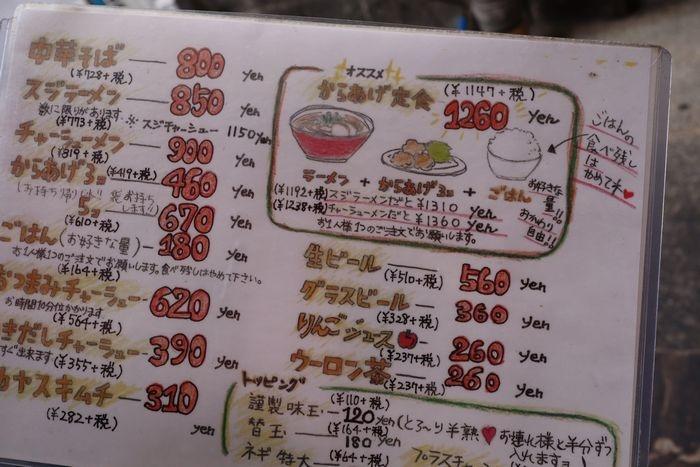 中華そば 800 yen
(¥728+税)
スジラーメン 850 yen
数に限りがあります
(¥773+税) ※スジチャーシュー 1150yen
チャーシューメン 900 yen
(¥819+税)
からあげ3コ (¥419+税) 460 yen
5コ 670 yen
(¥610+税)
ごはん(お好きな量) 180 yen
お1人様1つのご注文でお願いします。食べ残しはやめて下さい。
(¥164+税)
おつまみチャーシュー 620 yen
お時間10分位かかります
(¥564+税)
きだしチャーシュー 390 yen
すぐ出来ます(¥355+税)
ヤスキムチ 310 yen
(¥282+税)
オススメ
からあげ定食 (¥1147+税)
1260 yen
ラーメン + からあげ3コ + ごはん
お好きな量!!
おかわり自由!!
(¥1192+税) スジラーメンだと ¥1310 yen
(¥1238+税) チャーシューメンだと ¥1360 yen
お1人様1つのご注文でお願いします。
ごはんの
食べ残し
は
やめてネ♥
生ビール 560 yen
(¥510+税)
グラスビール 360 yen
(¥328+税)
りんごジュース 260 yen
(¥237+税)
ウーロン茶 260 yen
(¥237+税)
トッピング
(¥110+税)
謹製味玉 120 yen (とろ〜り半熟♥お連れ様と半分ずつ
入れますョ
(¥164+税)
替玉 180 yen
ネギ特大 (¥64+税)
プラスチャ